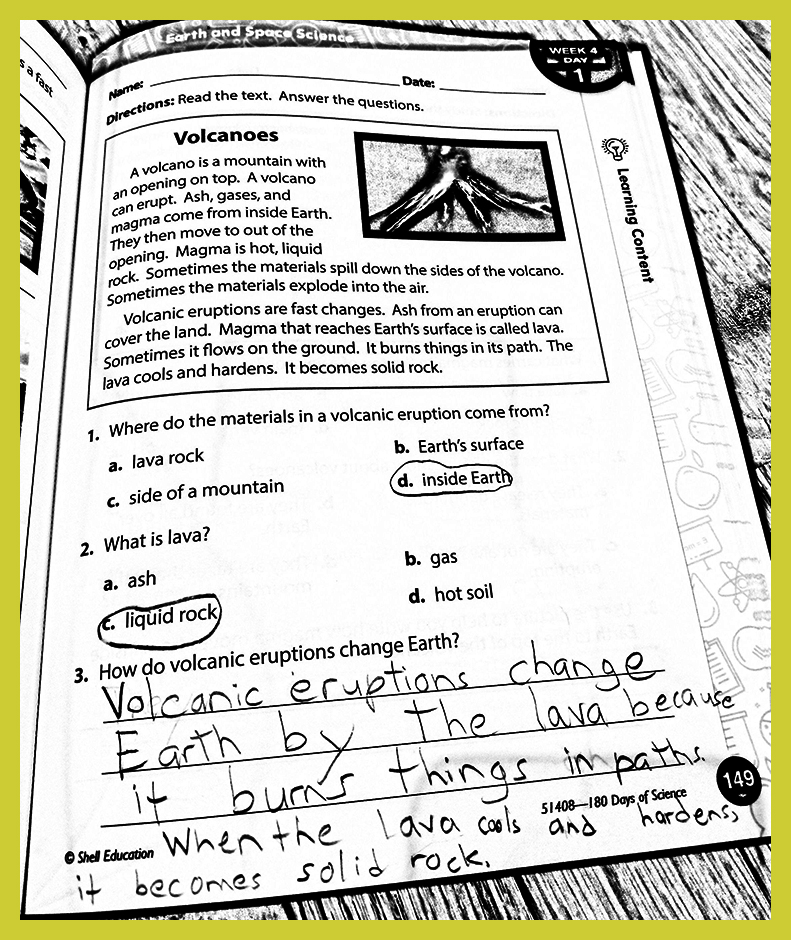 s a fast
Earth and Space Science
WEEK 4
DAY
1
Name:
Date:
Directions: Read the text. Answer the questions.
Learning Content
Volcanoes
A volcano is a mountain with
an opening on top. A volcano
can erupt. Ash, gases, and
magma come from inside Earth.
They then move to out of the
opening. Magma is hot, liquid
rock. Sometimes the materials spill down the sides of the volcano.
Sometimes the materials explode into the air.
Volcanic eruptions are fast changes. Ash from an eruption can
cover the land. Magma that reaches Earth's surface is called lava.
Sometimes it flows on the ground. It burns things in its path. The
lava cools and hardens. It becomes solid rock.
1. Where do the materials in a volcanic eruption come from?
a. lava rock
b. Earth's surface
c. side of a mountain
d. inside Earth
2. What is lava?
a. ash
b. gas
c. liquid rock
d. hot soil
3. How do volcanic eruptions change Earth?
Volcanic eruptions change
Earth by the lava because
it burns things in paths.
149
51408—180 Days of Science
© Shell Education
When the lava cools and hardens,
it becomes solid rock.